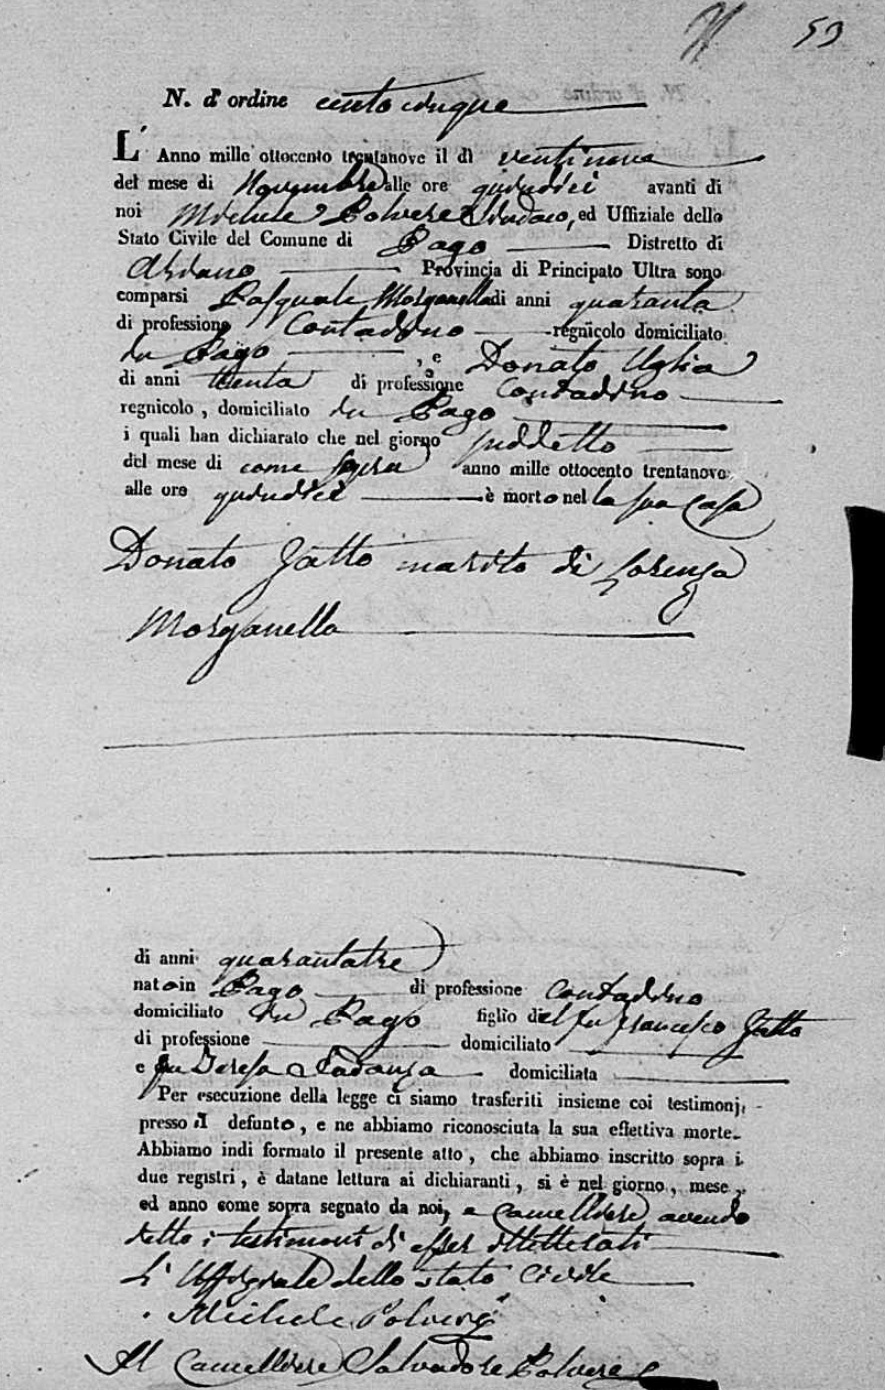 53
N. d'ordine cento cinque
L'Anno mille ottocento trentanove il dì ventinove
del mese di Novembre alle ore quindici avanti di
noi Michele Polvere Sindaco, ed Uffiziale dello
Stato Civile del Comune di Pago Distretto di
Ariano Provincia di Principato Ultra sono
comparsi Pasquale Morganella di anni quaranta
di professione Contadino regnicolo domiciliato
in Pago , e Donato Uglia
di anni trenta di professione Contadino
regnicolo, domiciliato in Pago
i quali han dichiarato che nel giorno suddetto
del mese di come sopra anno mille ottocento trentanove
alle ore quindici è morto nella sua casa
Donato Gatto marito di Lorenza
Morganella
di anni quarantatre
nato in Pago di professione Contadino
domiciliato in Pago figlio del fu Francesco Gatto
di professione domiciliato
e fu Teresa domiciliata
Per esecuzione della legge ci siamo trasferiti insieme coi testimonj,
presso il defunto, e ne abbiamo riconosciuta la sua effettiva morte.
Abbiamo indi formato il presente atto, che abbiamo inscritto sopra i
due registri, è datane lettura ai dichiaranti, si è nel giorno, mese,
ed anno come sopra segnato da noi, e Cancelliere avendo
detto i testimoni di esser illetterati
L'Uffiziale dello stato Civile
Michele Polvere
Il Cancelliere Salvadore Polvere